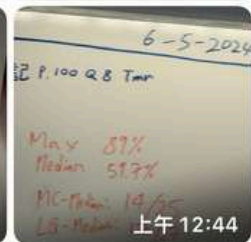 6-5-2024
記 P.100 Q8 Tmr
Max 89%
Median 59.7%
MC-Median: 19/25
LQ-Median:
上午 12:44